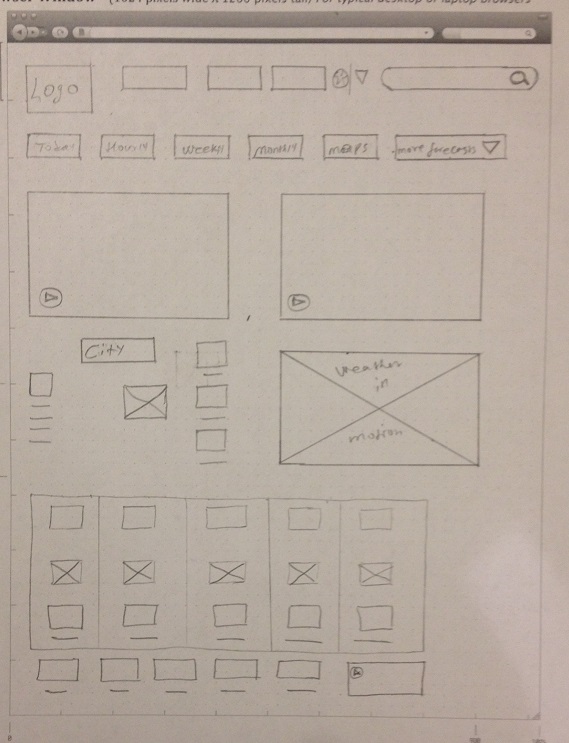 (1024 pixels wide x 1200 pixels tall) For typical desktop or laptop browsers
Logo
Today Hourly Weekly Monthly maps more forecasts
City
weather
in
motion